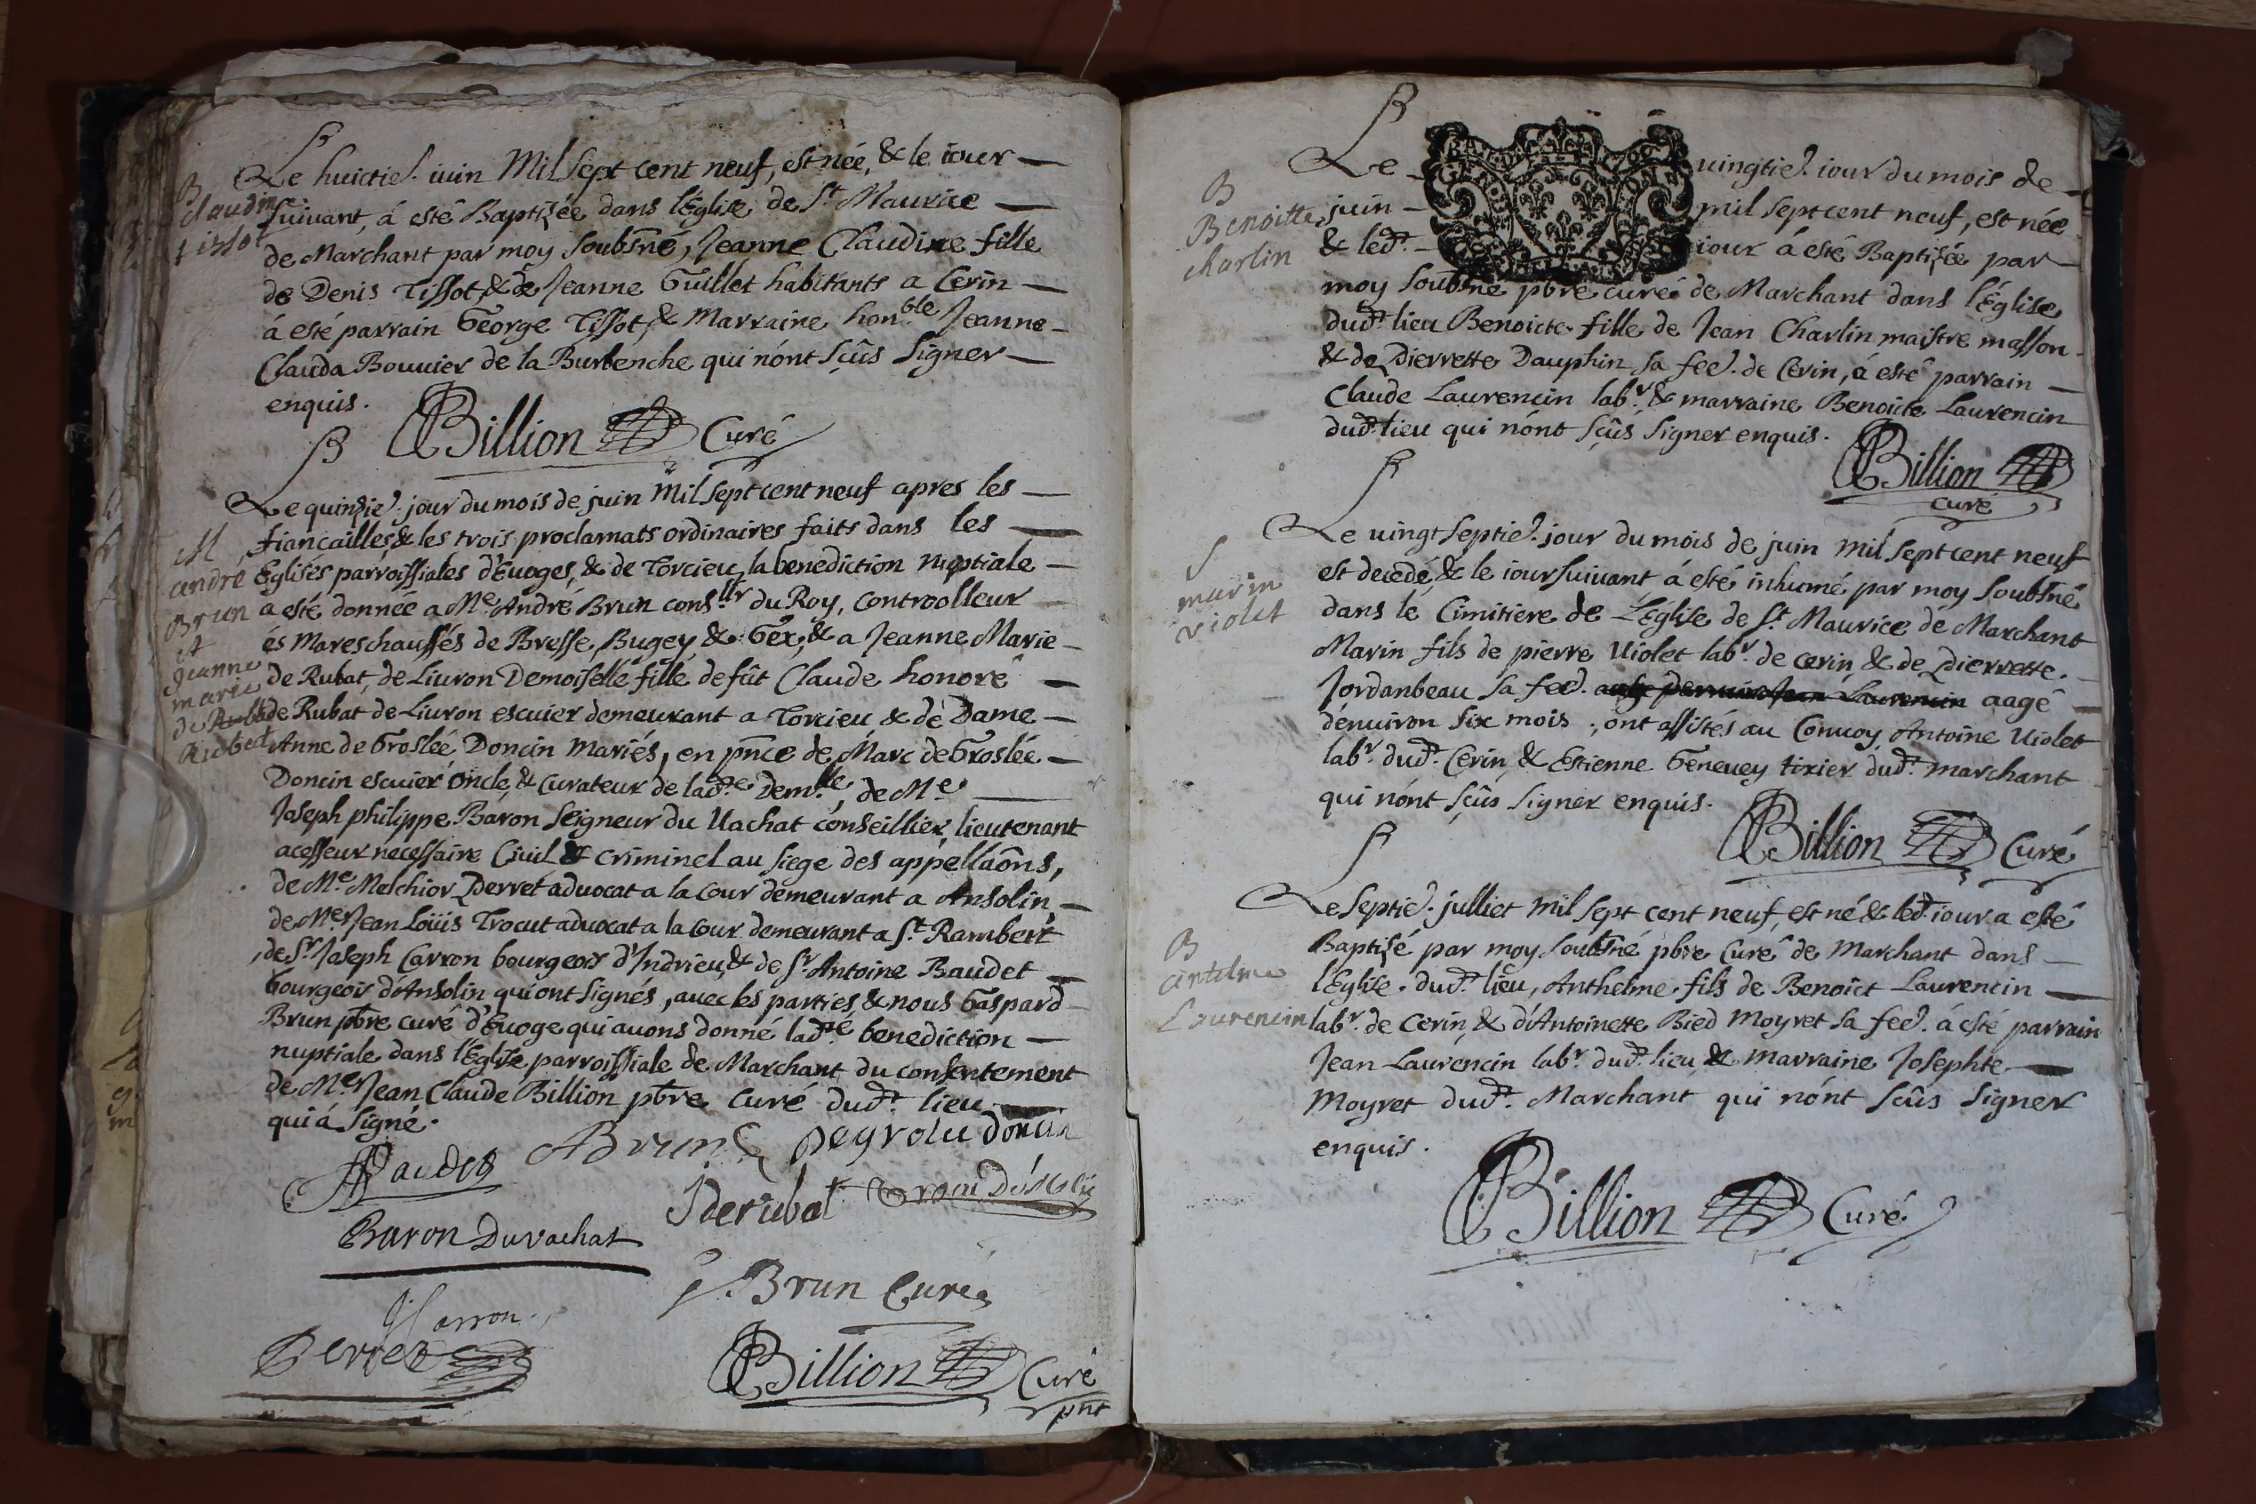 B
Le huictie. iuin Mil sept cent neuf, est née, & le iour
B
claudin
tissot
suivant, á esté Baptisée dans l'Eglise de St. Maurice
de Marchant par moy soubsne, Jeanne Claudine fille
de Denis Tissot, & de Jeanne Guillet habitants a Cerin
á esté parrain George Tissot, & Marraine honble Jeanne
Clauda Bouuier de la Burbenche qui n'ónt sçûs signer
enquis.
Billion Curé
Le quinzie. jour du mois de juin Mil sept cent neuf apres les
fiancailles, & les trois proclamats ordinaires faits dans les
M
andré
Brun
et
jeanne
marie
de Rubat
Eglises parroissiales d'Euoges, & de Torcieu, la benediction nuptiale
a esté donnée a Me. André Brun consllr du Roy, controolleur
és Mareschaussés de Bresse, Bugey & Géx, & a Jeanne Marie
de Rubat, de Liuron Demoiselle fille de fût Claude honoré
de Rubat de Liuron escuier demeurant a Torcieu & de Dame
Anne de Groslée Doncin mariés, en pnce de Marc de Groslée
Doncin escuier oncle, & curateur de lade. Demlle, de Me
Joseph philippe Baron Seigneur du Uachat conseillier, lieutenant
acesseur necessaire Ciuil & criminel au siege des appellaôns,
de Me. Melchior Perret aduocat a la cour demeurant a Ansolin
de Me. Jean Loüis Trocut aduocat a la cour demeurant a St. Rambert
de Sr. Joseph Carron bourgeois d'Indrieu, & de Sr. Antoine Baudet
bourgeois d'Ansolin qui ont signés, auec les parties, & nous Gaspard
Brun pbre curé d'Euoge qui auons donné lade. benediction
nuptiale dans l'Eglise parroissiale de Marchant du consentement
de Me. Jean Claude Billion pbre curé dudt. lieu
qui á signé.
Baudet ABrun peyrolu doncin
J derubat
Baron Duvachat
g. Brun Curé
J Carron
Perret
Billion Curé
pnt
B
Le uingtie. iour du mois de
B
Benoitte
charlin
juin mil sept cent neuf, est née
& ledt. iour á esté Baptisée par
moy soubsne pbre curé de Marchant dans l'Église
dudt. lieu Benoicte fille de Jean Charlin maistre masson
& de Pierrette Dauphin sa fee. de Cerin, á esté parrain
Claude Laurencin labr. & marraine Benoicte Laurencin
dudt. lieu qui nónt sçûs signer enquis.
Billion
curé
S
Le uingt septie. jour du mois de juin mil sept cent neuf
S
marin
violet
est decedé, & le iour suiuant á esté inhumé par moy soubsné
dans lé Cimitiere de L'Église de St. Maurice dé Marchant
Marin fils de pierre Uiolet labr. de cerin, & de Pierrette
Jordanbeau sa fee. aagé
d'enuiron six mois, ont assistés au Conuoy Antoine Uiolet
labr. dudt. Cerin, & Estienne Geneuey tixier dudt. marchant
qui nónt sçûs signer enquis.
Billion Curé
B
Le septie. julliet Mil sept cent neuf, est né & ledt. iour a esté
B
antelme
Laurencin
Baptisé par moy soubsné pbre Curé de Marchant dans
l'Eglise dudt. lieu, Anthelme fils de Benoict Laurencin
labr. de cerin, & d'Antoinette Bied Moyret sa fee. á esté parrain
Jean Laurencin labr. dudt. lieu & marraine Josephte
Moyret dudt. Marchant qui nónt sçûs signer
enquis.
Billion Curé